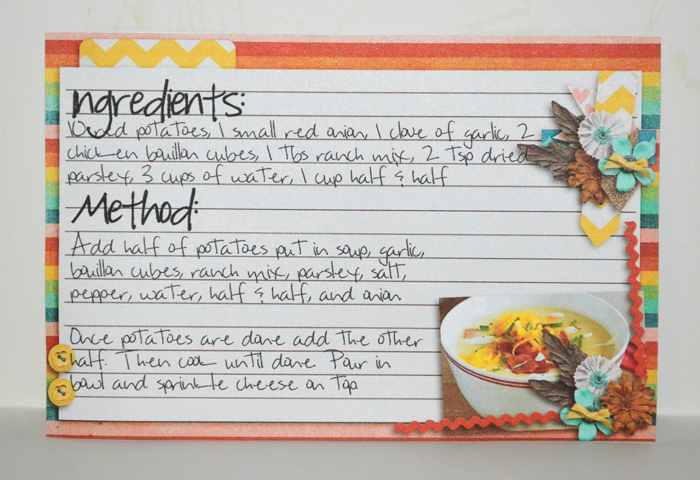 Ingredients:
10 diced potatoes, 1 small red onion, 1 clove of garlic, 2
chicken bouillon cubes, 1 Tbs ranch mix, 2 Tsp dried
parsley, 3 cups of water, 1 cup half & half
Method:
Add half of potatoes put in soup, garlic,
bouillon cubes, ranch mix, parsley, salt,
pepper, water, half & half, and onion
Once potatoes are done add the other
half. Then cook until done Pour in
bowl and sprinkle cheese on Top